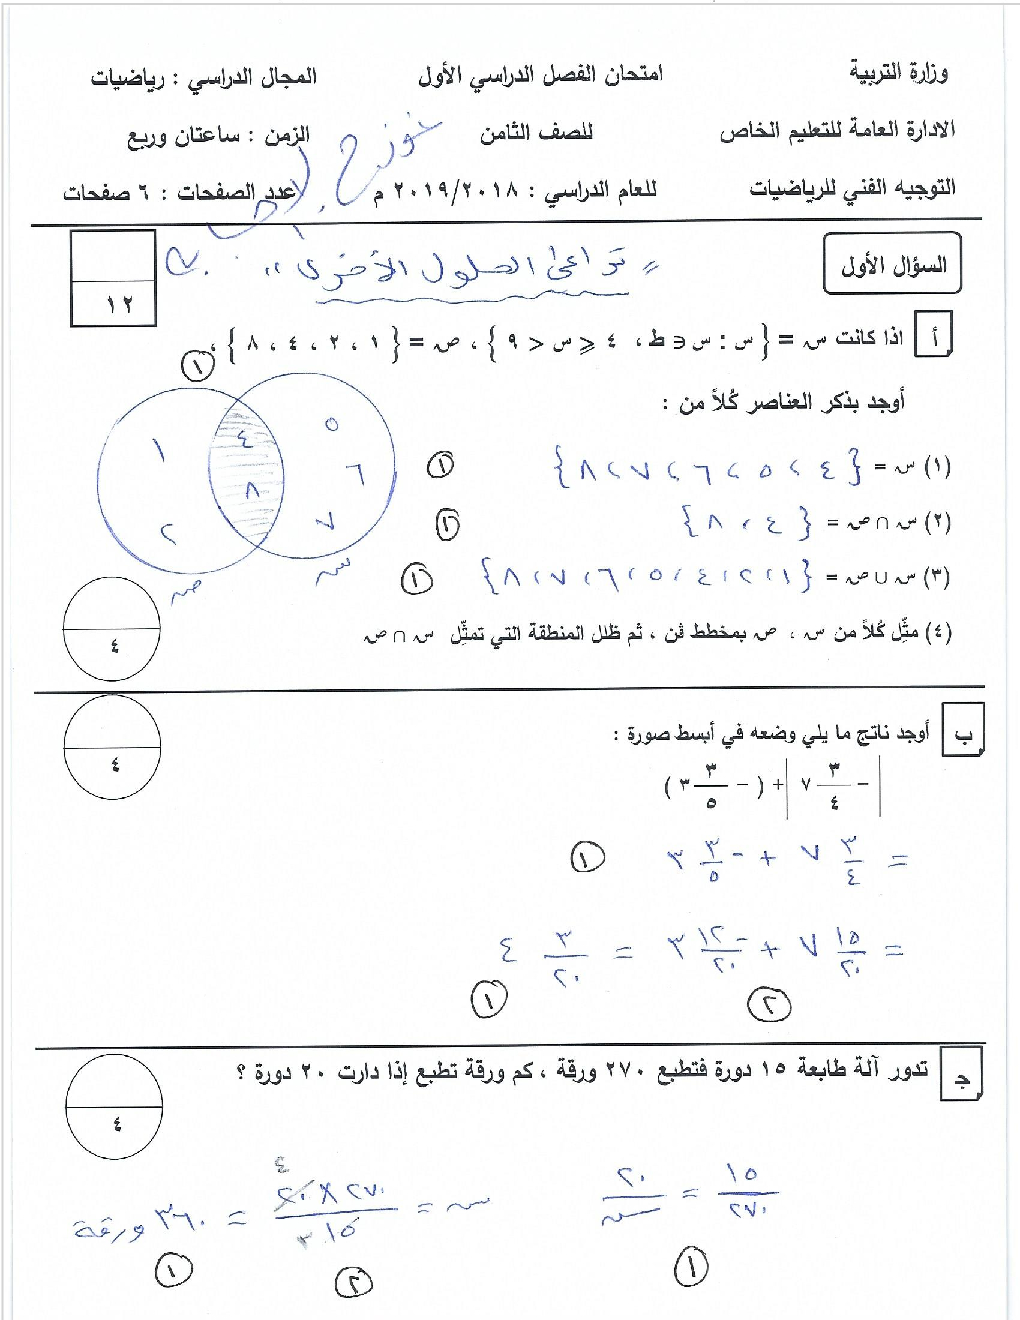 وزارة التربية امتحان الفصل الدراسي الأول المجال الدراسي : رياضيات
الادارة العامة للتعليم الخاص للصف الثامن الزمن : ساعتان وربع
التوجيه الفني للرياضيات للعام الدراسي : ٢٠١٩/٢٠١٨ م عدد الصفحات : ٦ صفحات
نموذج الإجابة
السؤال الأول
" تراعى الحلول الأخرى "
١٢
أ اذا كانت س = { س : س ∈ ط ، ٤ ⩽ س < ٩ } ، ص = { ١ ، ٢ ، ٤ ، ٨ } ،
أوجد بذكر العناصر كُلاً من :
(١) س = { ٤ ، ٥ ، ٦ ، ٧ ، ٨ } ١
(٢) س ∩ ص = { ٤ ، ٨ } ١
(٣) س ∪ ص = { ١ ، ٢ ، ٤ ، ٥ ، ٦ ، ٧ ، ٨ } ١
(٤) مثِّل كُلاً من س ، ص بمخطط ڤن ، ثم ظلل المنطقة التي تمثِّل س ∩ ص
١
٥ ٤ ١
٦ ٨
٧ ٢
س ص
٤
ب أوجد ناتج ما يلي وضعه في أبسط صورة :
٤
| − ٧ ٣/٤ | + ( − ٣ ٣/٥ )
= ٧ ٣/٤ + − ٣ ٣/٥ ١
= ٧ ١٥/٢٠ + − ٣ ١٢/٢٠ = ٤ ٣/٢٠
٢ ١
ج تدور آلة طابعة ١٥ دورة فتطبع ٢٧٠ ورقة ، كم ورقة تطبع إذا دارت ٢٠ دورة ؟
٤
١٥/٢٧٠ = ٢٠/س
س = ٢٧٠ × ٢٠/١٥ = ٣٦٠ ورقة
٤
٣
١ ٢ ١